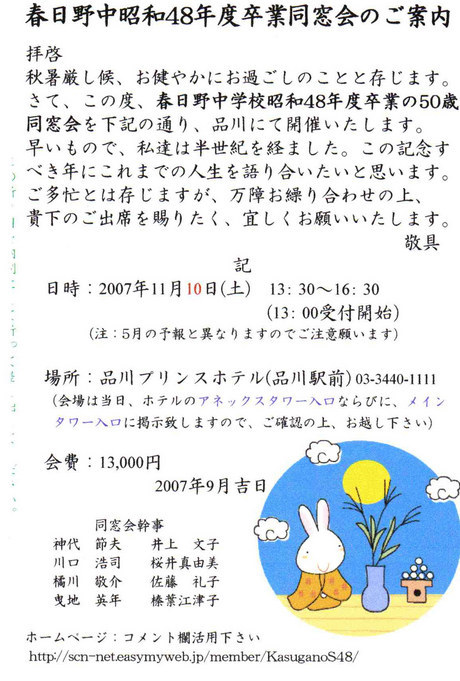 春日野中昭和48年度卒業同窓会のご案内
拝啓
秋暑厳し候、お健やかにお過ごしのことと存じます。
さて、この度、春日野中学校昭和48年度卒業の50歳
同窓会を下記の通り、品川にて開催いたします。
早いもので、私達は半世紀を経ました。この記念す
べき年にこれまでの人生を語り合いたいと思います。
ご多忙とは存じますが、万障お繰り合わせの上、
貴下のご出席を賜りたく、宜しくお願いいたします。
敬具
記
日時：2007年11月10日(土) 13：30～16：30
(13：00受付開始)
(注：5月の予報と異なりますのでご注意願います)
場所：品川プリンスホテル(品川駅前) 03-3440-1111
(会場は当日、ホテルのアネックスタワー入口ならびに、メイン
タワー入口に掲示致しますので、ご確認の上、お越し下さい)
会費：13,000円
2007年9月吉日
同窓会幹事
神代 節夫 井上 文子
川口 浩司 桜井真由美
橘川 敬介 佐藤 礼子
曳地 英年 榛葉江津子
ホームページ：コメント欄活用下さい
http://scn-net.easymyweb.jp/member/KasuganoS48/